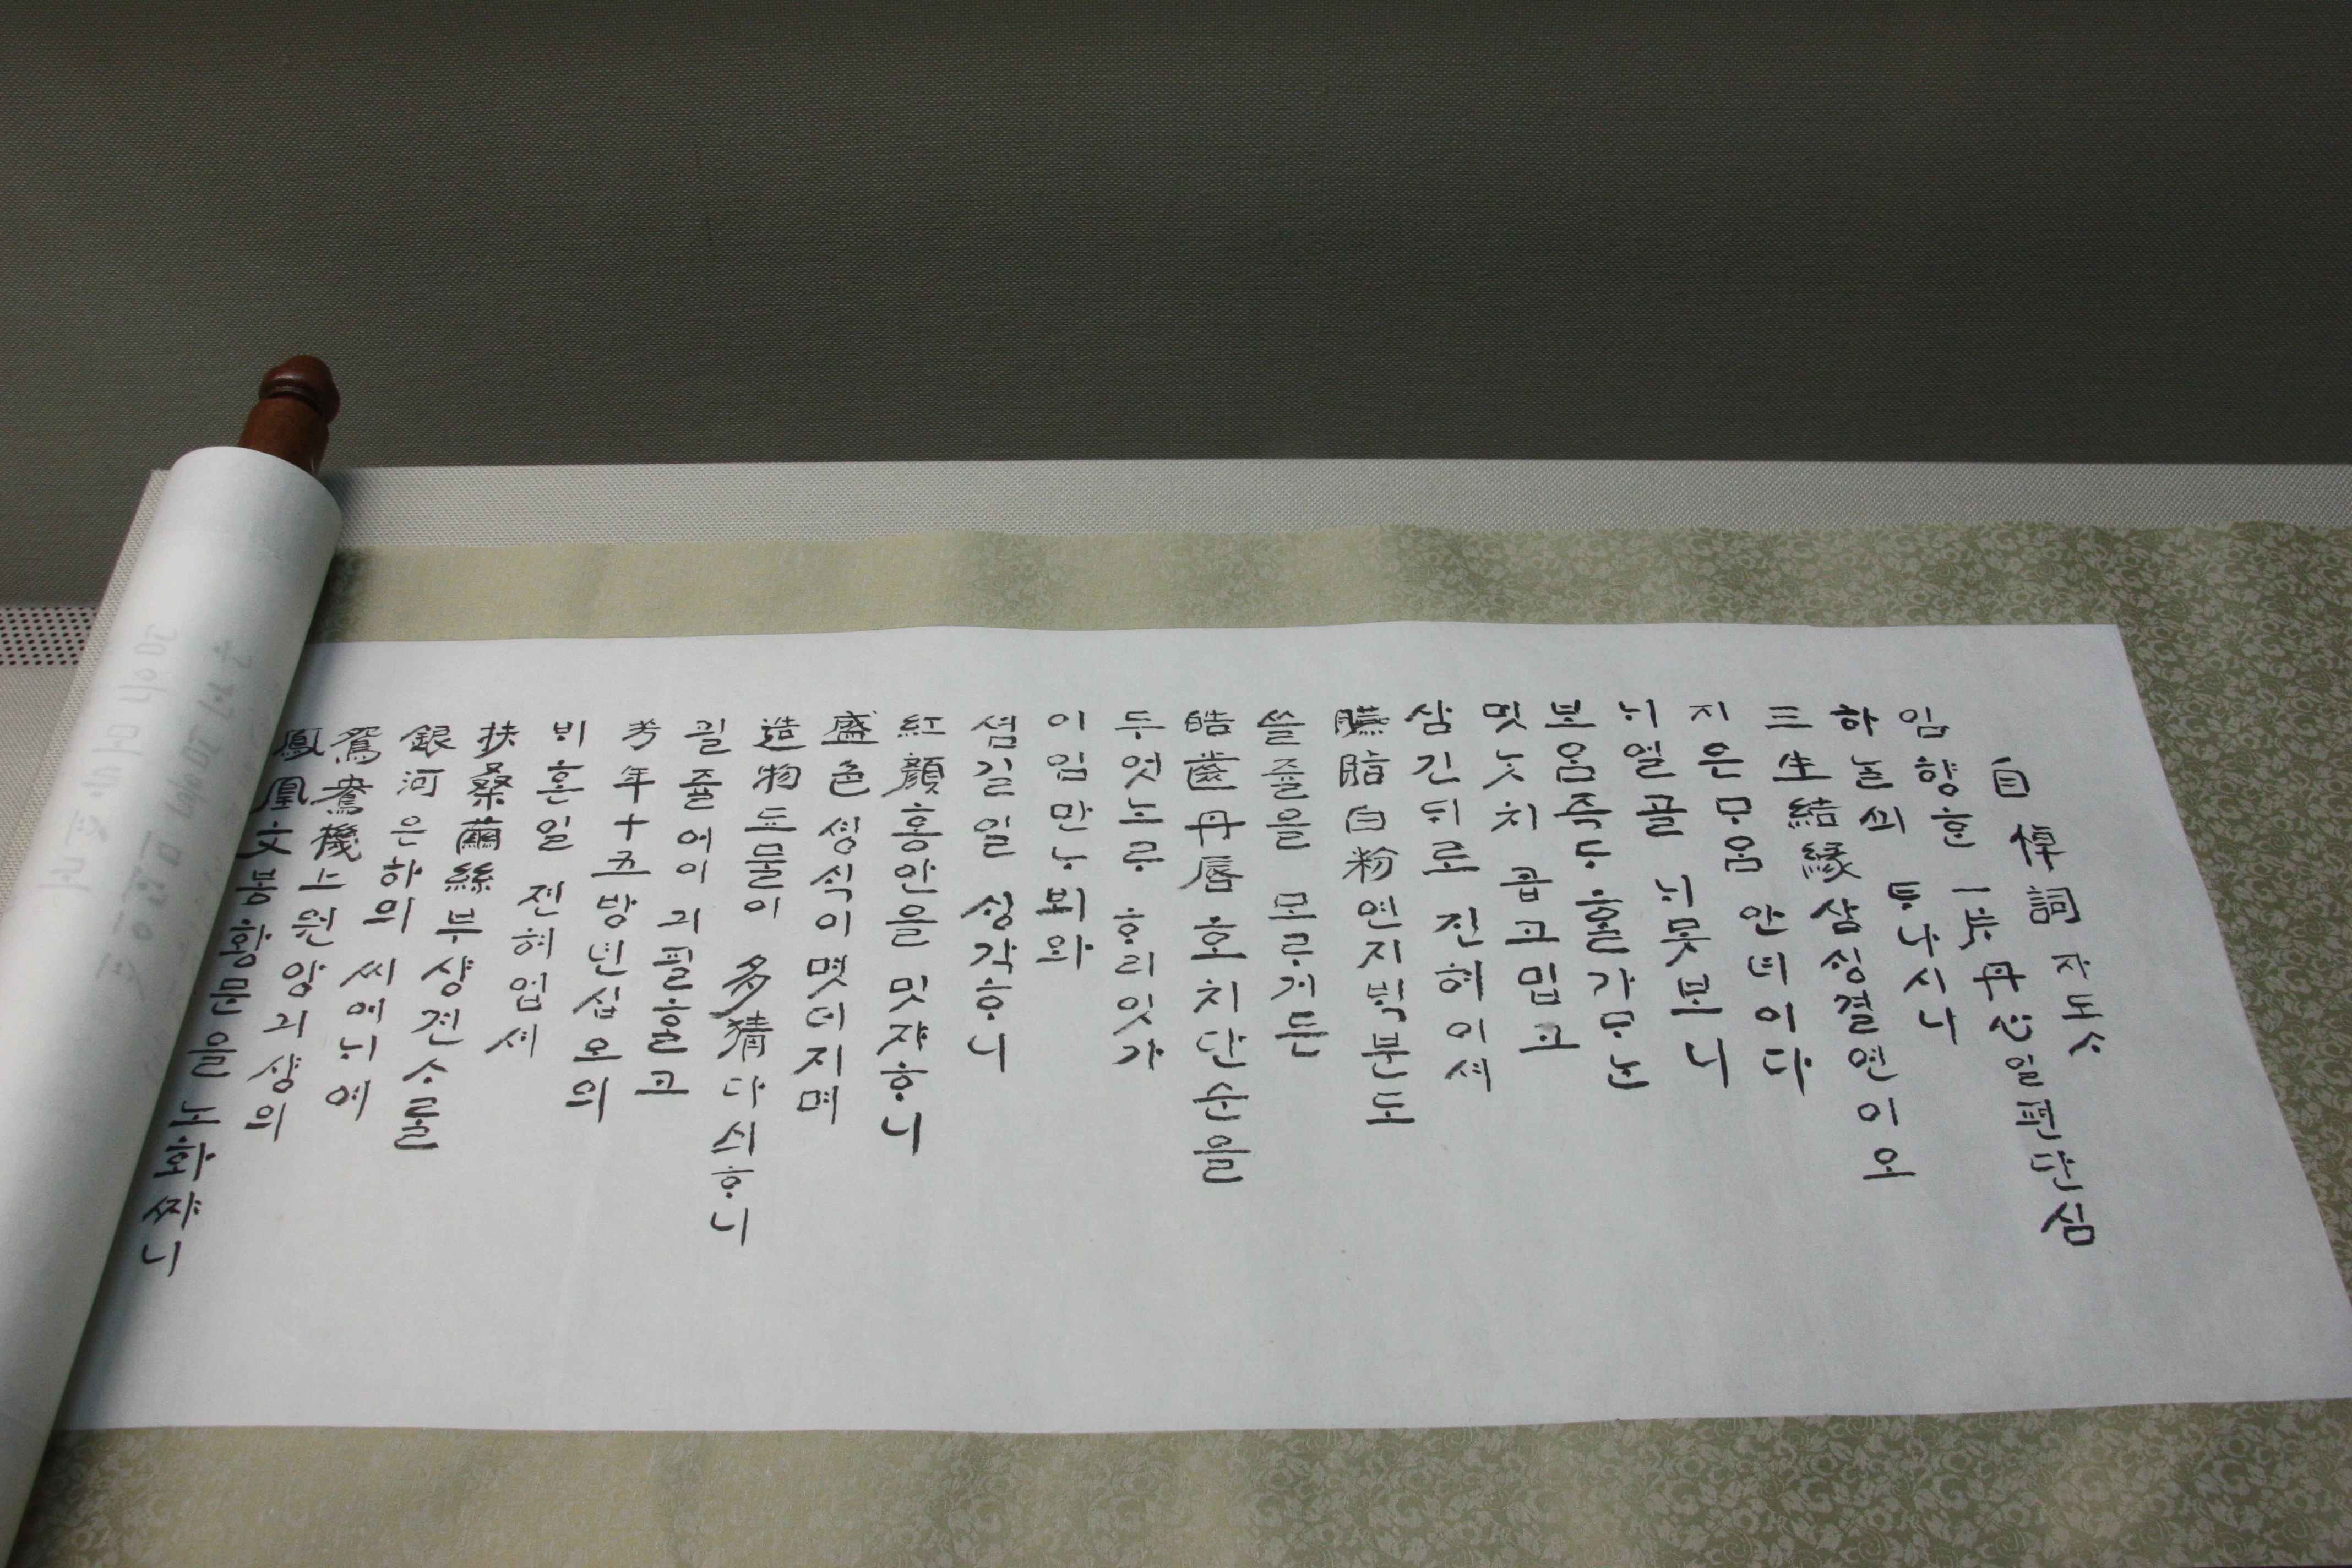 自悼詞 ᄌᆞ도ᄉᆞ
임향ᄒᆞᆫ 一片丹心일편단심
하ᄂᆞᆯ싀 ᄐᆞ나시니
三生結緣삼싱결연이오
지은 ᄆᆞ음 안녀이다
ᄂᆡ얼골 ᄂᆡ못보니
보암즉도 ᄒᆞᆯ가ᄆᆞᄂᆞᆫ
멋ᄂᆞᆺ치 곱고밉고
삼긴ᄃᆡ로 진혀이셔
臙脂白粉연지ᄇᆡᆨ분도
쓸줄을 모ᄅᆞ거든
皓齒丹脣호치단순을
두엇노ᄅᆞ ᄒᆞ리잇가
이임만ᄂᆞ뵈와
셤길일 싱각ᄒᆞ니
紅顔홍안을 밋쟈ᄒᆞ니
盛色셩식이 몃더지며
造物도물이 多猜다싀ᄒᆞ니
괼줄어이 긔필ᄒᆞᆯ고
芳年十五방년십오의
ᄇᆡ혼일 젼혀업셔
扶桑繭絲부샹견ᄉᆞᄅᆞᆯ
銀河은하의 씨어ᄂᆡ여
鴛鴦機上원앙긔샹의
鳳凰文봉황문을 노화ᄶᆞ니